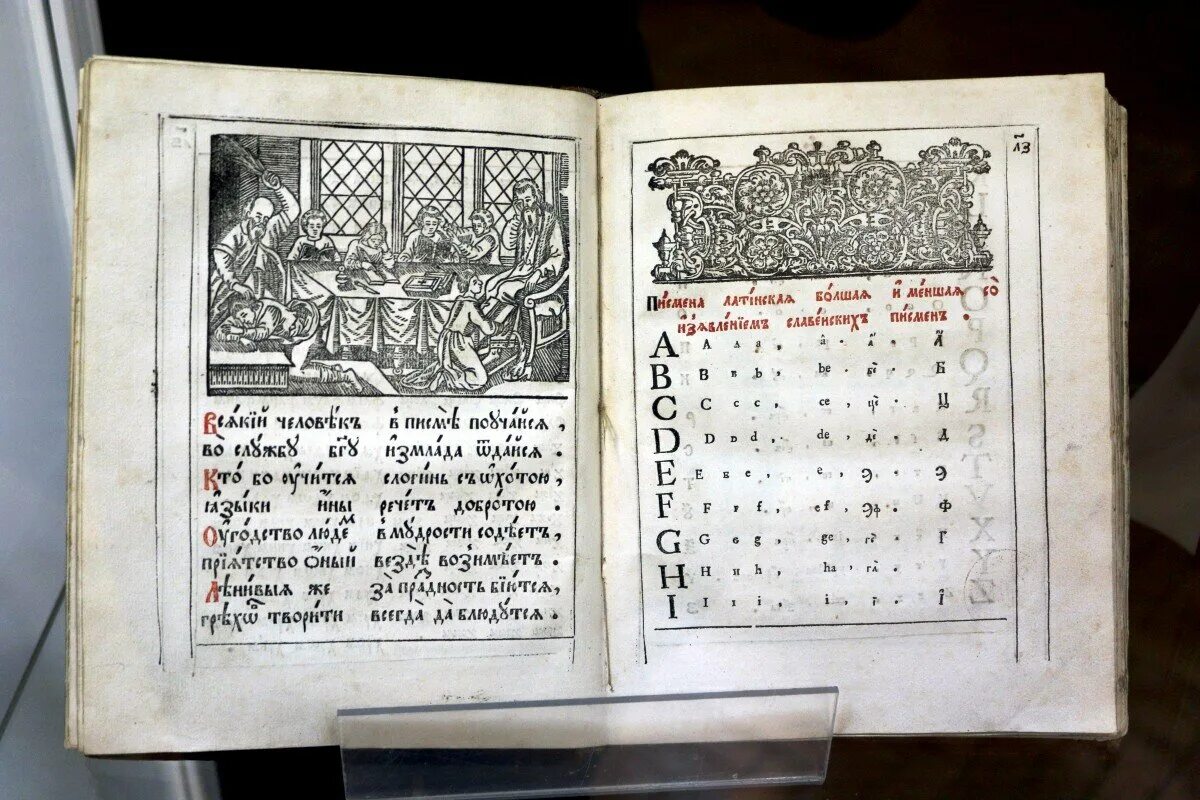 Всѧкїй человѣкъ в писмѣ поучайсѧ,
во службу бг҃у измлада ѿдайсѧ .
Кто бо ѹчитсѧ слогинь съ ѡхотою,
ꙗзыки ины речетъ добротою .
Ѹгодство людем в мудрости содѣетъ,
прїѧтство ѡный вездѣ возимѣетъ .
Лѣнивыѧ же за праздность бїютсѧ,
грѣхѡв творити всегда да блюдутсѧ .
л҃з
Писмена латїнскаѧ болшаѧ и меншаѧ со
изъѧвленїемъ славенскихъ писмен .
A A a a , a . а , А
B B b b , be . бе . Б
C C c c , ce , це . Ц
D D d d . de , де . Д
E E e e , e , э . Э
F F f f , ef , эф . Ф
G G g g , ge , ге . Г
H H h h , ha , га .
I I i i , i , і . І